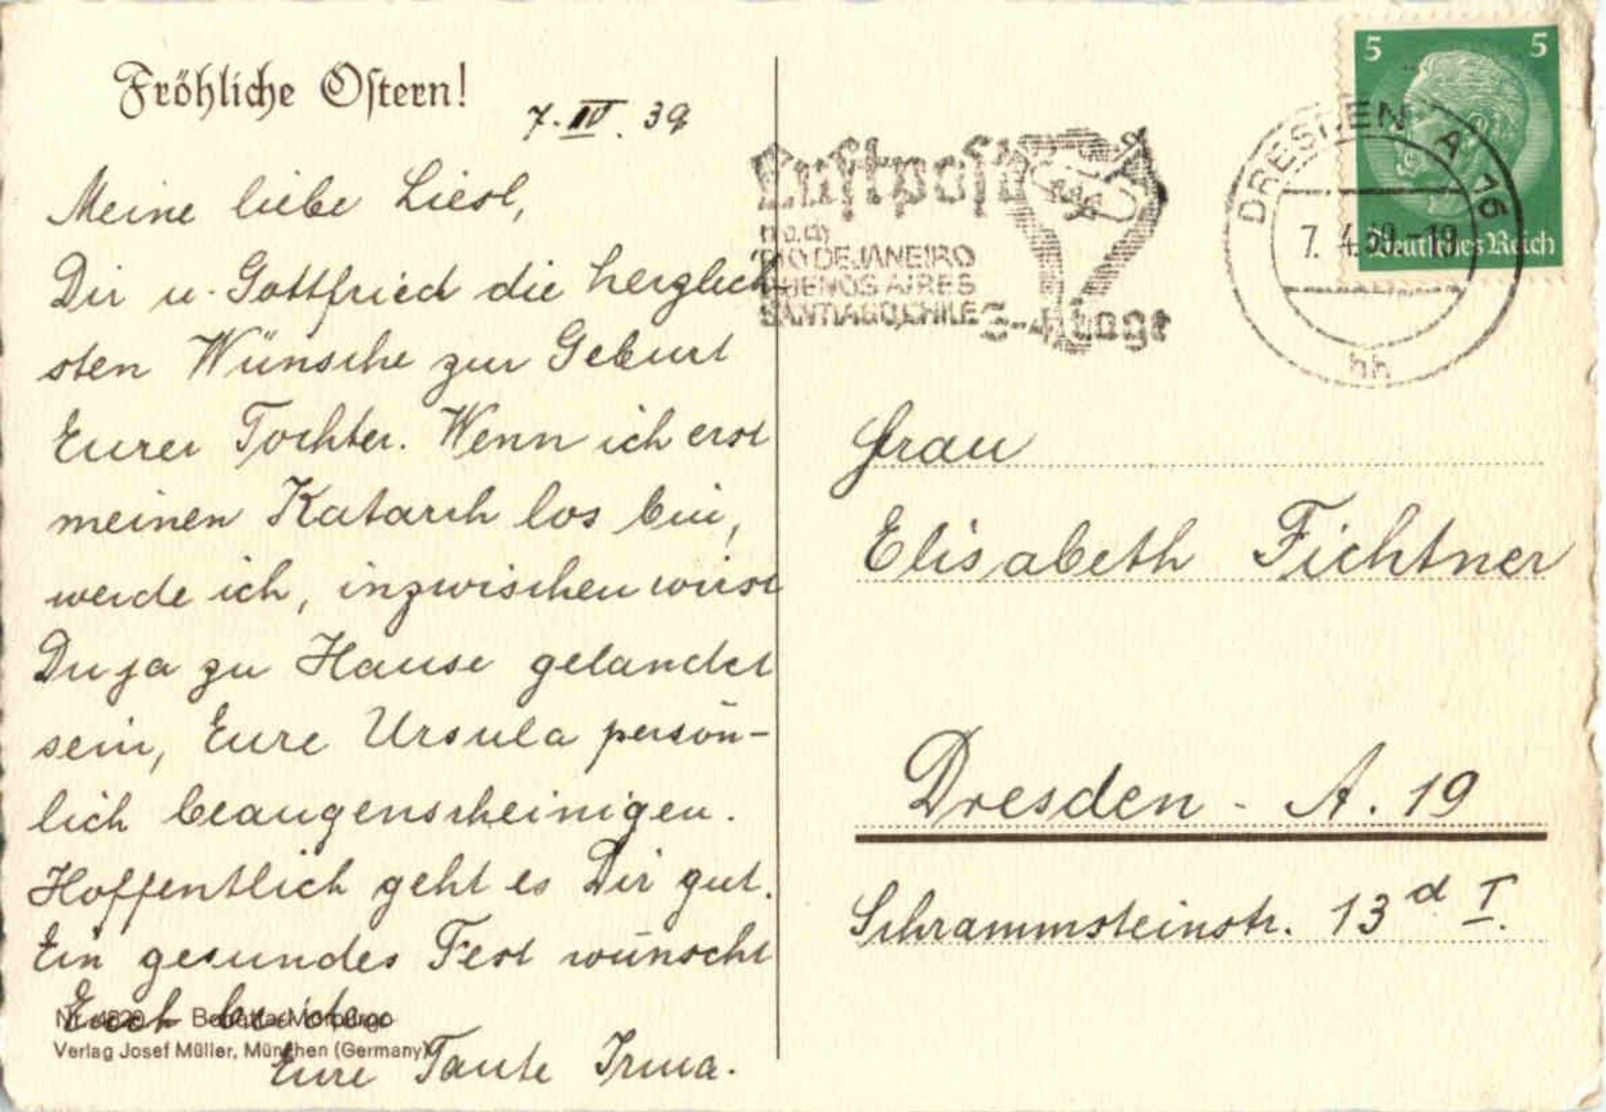 Fröhliche Ostern!
7. IV. 39
Meine liebe Liesl,
Dir u. Gottfried die herzlich-
sten Wünsche zur Geburt
Eurer Tochter. Wenn ich erst
meinen Katarrh los bin,
werde ich, inzwischen wirst
Du ja zu Hause gelandet
sein, Eure Ursula persön-
lich beaugenscheinigen.
Hoffentlich geht es Dir gut.
Ein gesundes Fest wünscht
Euch beiden
Eure Tante Irma.
Verlag Josef Müller, München (Germany)
Luftpost
nach
RIO DE JANEIRO
BUENOS AIRES
SANTIAGO, CHILE
DRESDEN A 16
7. 4. 39 - 19
hh
5 5
Deutsches Reich
Frau
Elisabeth Fichtner
Dresden - A. 19
Schrammsteinstr. 13 d I.